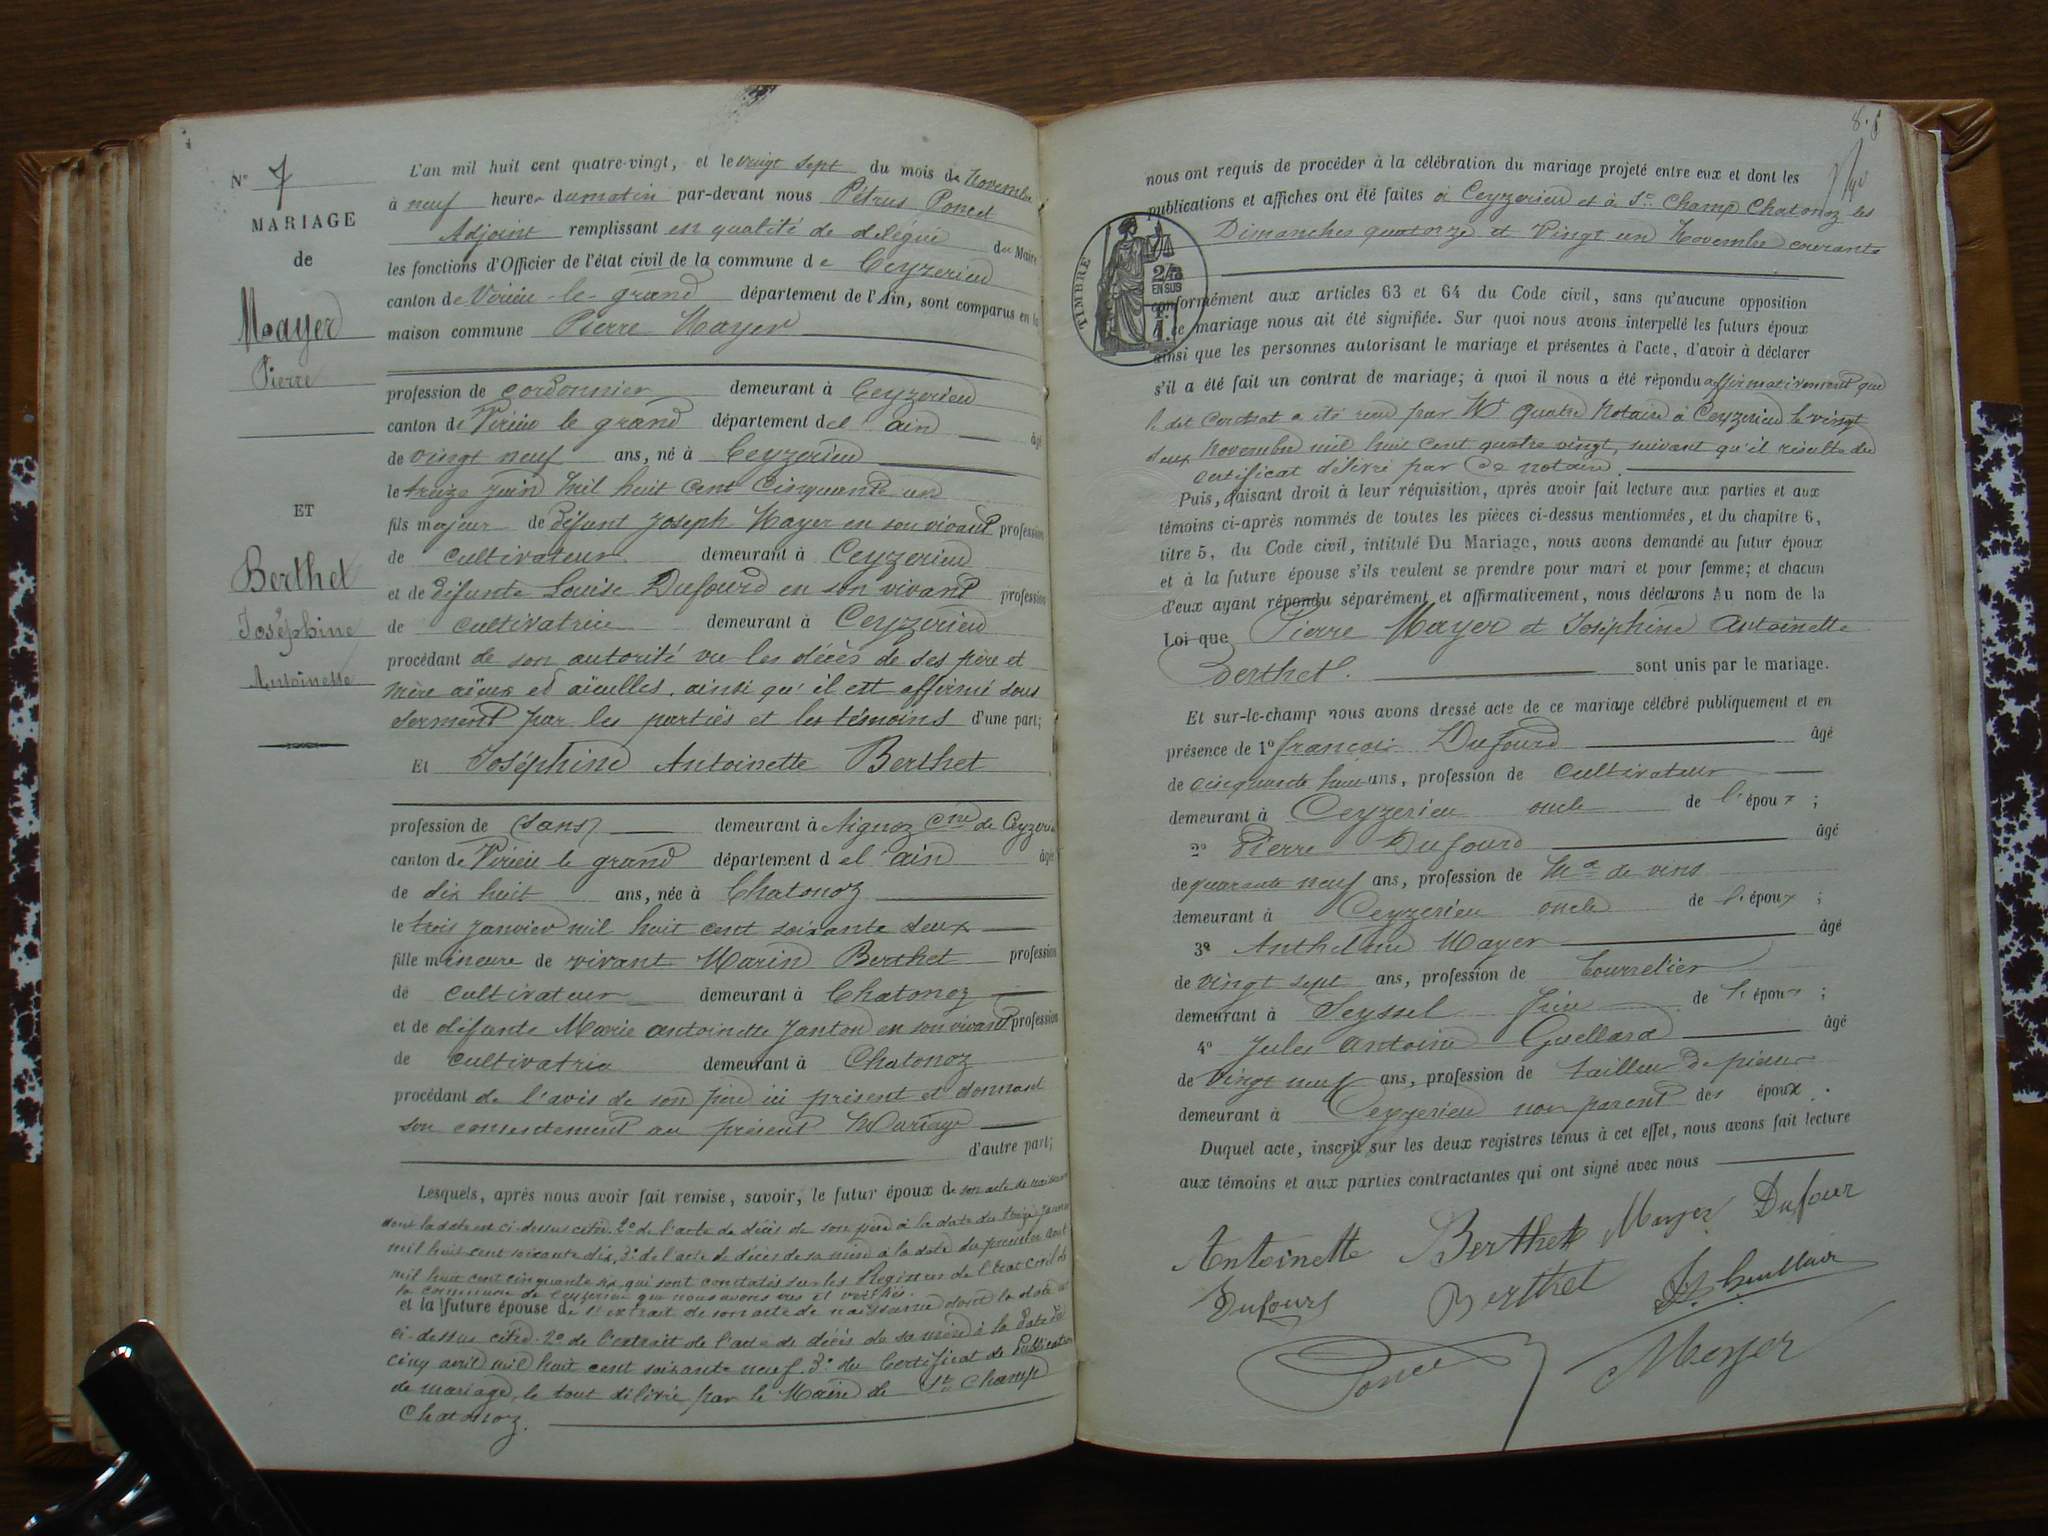 N° 7
MARIAGE
de
Mayer
Pierre
ET
Berthet
Joséphine
Antoinette
L'an mil huit cent quatre-vingt, et le vingt sept du mois de Novembre
à neuf heures du matin par-devant nous Pétrus Poncet
Adjoint remplissant en qualité de délégué du Maire
les fonctions d'Officier de l'état civil de la commune de Ceyzerieu
canton de Virieu-le-grand département de l'Ain, sont comparus en la
maison commune Pierre Mayer
profession de cordonnier demeurant à Ceyzerieu
canton de Virieu le grand département de l'ain âgé
de vingt neuf ans, né à Ceyzerieu
le treize juin mil huit cent cinquante un
fils majeur de défunt Joseph Mayer en son vivant profession
de cultivateur demeurant à Ceyzerieu
et de défunte Louise Dufourd en son vivant profession
de cultivatrice demeurant à Ceyzerieu
procédant de son autorité vu les décès de ses père et
mère aïeux et aïeulles, ainsi qu'il est affirmé sous
serment par les parties et les témoins d'une part;
Et Joséphine Antoinette Berthet
profession de (sans) demeurant à Aignoz Cne de Ceyzerieu
canton de Virieu le grand département de l'ain âgée
de dix huit ans, née à Chatonoz
le trois janvier mil huit cent soixante deux
fille mineure de vivant Marin Berthet profession
de cultivateur demeurant à Chatonoz
et de défunte Marie antoinette Janton en son vivant profession
de cultivatrice demeurant à Chatonoz
procédant de l'avis de son père ici présent et donnant
son consentement au présent Mariage
d'autre part;
Lesquels, après nous avoir fait remise, savoir, le futur époux de son acte de naissance
dont la date est ci-dessus citée. 2° de l'acte de décès de son père à la date du treize janvier
mil huit cent soixante dix, 3° de l'acte de décès de sa mère à la date du premier aout
mil huit cent cinquante six, qui sont constatés sur les Registres de l'Etat civil de
la commune de Ceyzerieu que nous avons vus et vérifiés.
et la future épouse de 1° extrait de son acte de naissance dont la date est
ci-dessus citée. 2° de l'extrait de l'acte de décès de sa mère à la date du
cinq avril mil huit cent soixante neuf 3° du Certificat de Publication
de mariage, le tout délivré par le Maire de St Champ
Chatonoz.
nous ont requis de procéder à la célébration du mariage projeté entre eux et dont les
publications et affiches ont été faites à Ceyzerieu et à St Champ Chatonoz les
Dimanches quatorze et Vingt un Novembre courants
TIMBRE
2/10
EN SUS
conformément aux articles 63 et 64 du Code civil, sans qu'aucune opposition
à ce mariage nous ait été signifiée. Sur quoi nous avons interpellé les futurs époux
ainsi que les personnes autorisant le mariage et présentes à l'acte, d'avoir à déclarer
s'il a été fait un contrat de mariage; à quoi il nous a été répondu affirmativement que
le dit Contrat a été reçu par Me Quatre Notaire à Ceyzerieu le vingt
deux Novembre mil huit cent quatre vingt, suivant qu'il résulte du
certificat délivré par ce notaire.
Puis, faisant droit à leur réquisition, après avoir fait lecture aux parties et aux
témoins ci-après nommés de toutes les pièces ci-dessus mentionnées, et du chapitre 6,
titre 5, du Code civil, intitulé Du Mariage, nous avons demandé au futur époux
et à la future épouse s'ils veulent se prendre pour mari et pour femme; et chacun
d'eux ayant répondu séparément et affirmativement, nous déclarons Au nom de la
Loi que Pierre Mayer et Joséphine Antoinette
Berthet. sont unis par le mariage.
Et sur-le-champ nous avons dressé acte de ce mariage célébré publiquement et en
présence de 1° françois Dufourd âgé
de cinquante huit ans, profession de cultivateur
demeurant à Ceyzerieu oncle de l'époux;
2° Pierre Dufourd âgé
de quarante neuf ans, profession de Md de vins
demeurant à Ceyzerieu oncle de l'époux;
3° Anthelme Mayer âgé
de vingt sept ans, profession de bourrelier
demeurant à Seyssel frère de l'époux;
4° Jules Antoine Guellard âgé
de Vingt neuf ans, profession de tailleur de pierre
demeurant à Ceyzerieu non parent des époux.
Duquel acte, inscrit sur les deux registres tenus à cet effet, nous avons fait lecture
aux témoins et aux parties contractantes qui ont signé avec nous
Antoinette Berthet Mayer Dufour
Dufourd Berthet
Mayer